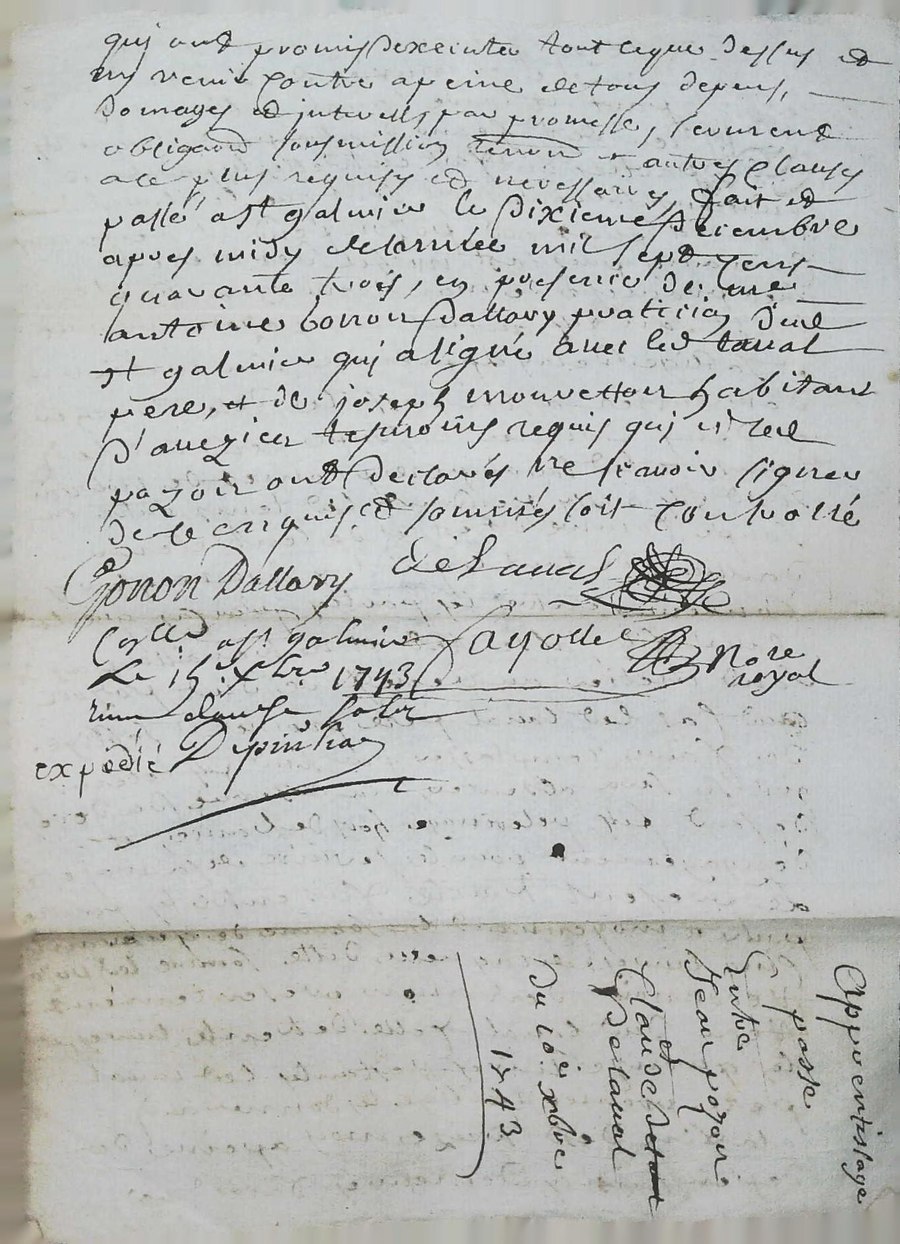 qui ont promis d'exeinter tout ceque dessus et
ny venir contre a peine de tous depens,
Domages et interests, par promesse, serment
obligaon soumission renon et autres clauses
ace plus requises et necessaires, fait et
passé a st galmier le Dixieme Decembre
apres midy de lannée mil sept cens
quarante trois, en presence de me
antoine Gonon Dallary praticien dud
st galmier qui a signé avec led Laval
pere, et de joseph habitant
D'aveizieu temoins requis qui et led
pozoir ont Declarés ne scavoir signer
De ce enquis et sommés soit controllé
Gonon Dallary DeLaval
Coll a st galmier Payolle Nore
Le 15e xbre 1743 royal
douze
expedié Depinhac
Apprentissage
passe
Entre
Jean pozoir
et
Claude Delaval
Delaval
Du 10e xbre
1743